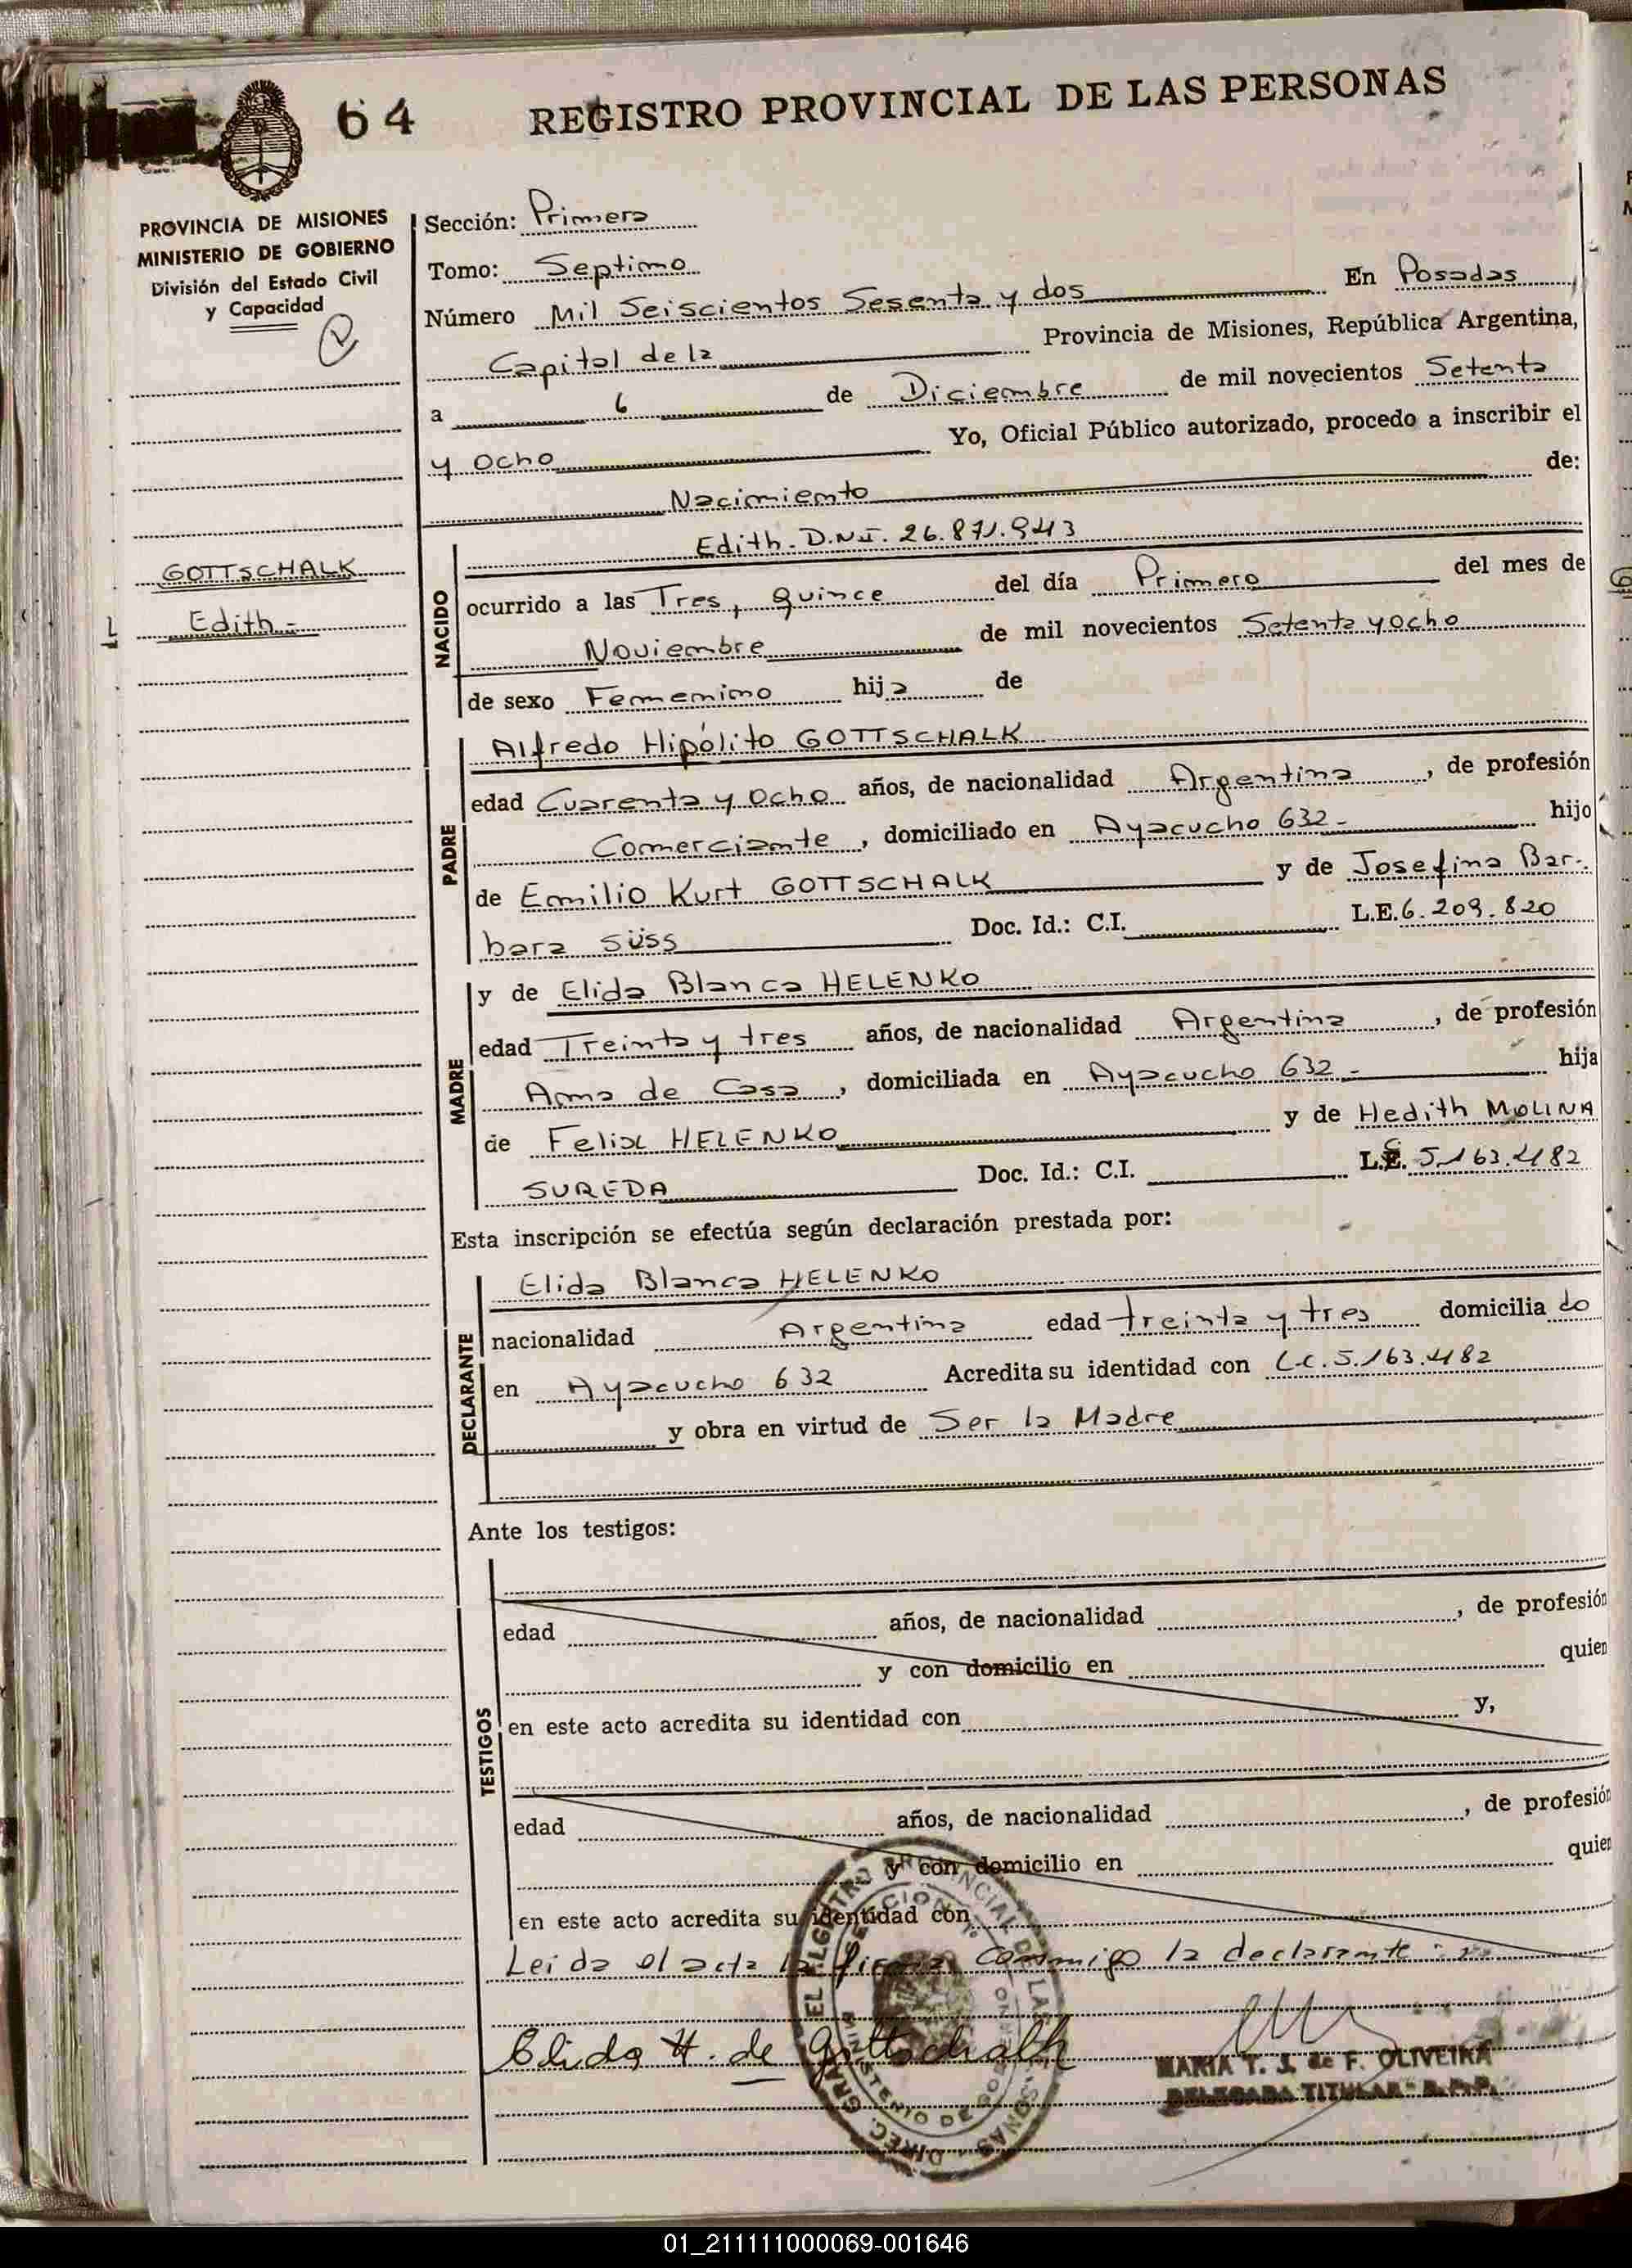 64
REGISTRO PROVINCIAL DE LAS PERSONAS
PROVINCIA DE MISIONES
MINISTERIO DE GOBIERNO
División del Estado Civil
y Capacidad
GOTTSCHALK
Edith -
Sección: Primera
Tomo: Septimo
Número Mil Seiscientos Sesenta y dos En Posadas
Capital de la Provincia de Misiones, República Argentina,
a 6 de Diciembre de mil novecientos Setenta
y Ocho Yo, Oficial Público autorizado, procedo a inscribir el
Nacimiento de:
NACIDO
Edith - D.N.I. 26.871.943
ocurrido a las Tres, quince del día Primero del mes de
Noviembre de mil novecientos Setenta y ocho
de sexo Femenino hija de
PADRE
Alfredo Hipólito GOTTSCHALK
edad Cuarenta y Ocho años, de nacionalidad Argentina, de profesión
Comerciante, domiciliado en Ayacucho 632 - hijo
de Emilio Kurt GOTTSCHALK y de Josefina Bar-
bara SÜSS Doc. Id.: C.I. L.E. 6.209.820
MADRE
y de Elida Blanca HELENKO
edad Treinta y tres años, de nacionalidad Argentina, de profesión
Ama de Casa, domiciliada en Ayacucho 632 - hija
de Felix HELENKO y de Hedith MOLINA
SUREDA Doc. Id.: C.I. L.C. 5.163.482
Esta inscripción se efectúa según declaración prestada por:
DECLARANTE
Elida Blanca HELENKO
nacionalidad Argentina edad treinta y tres domicilia do
en Ayacucho 632 Acredita su identidad con L.C. 5.163.482
y obra en virtud de Ser la Madre
Ante los testigos:
TESTIGOS
edad años, de nacionalidad , de profesión
y con domicilio en quien
en este acto acredita su identidad con y,
edad años, de nacionalidad , de profesión
y con domicilio en quien
en este acto acredita su identidad con
Leida el acta la firma conmigo la declarante
Elida H. de Gottschalk
MARIA T. J. de F. OLIVEIRA
DELEGADA TITULAR R.P.P.
01_211111000069-001646